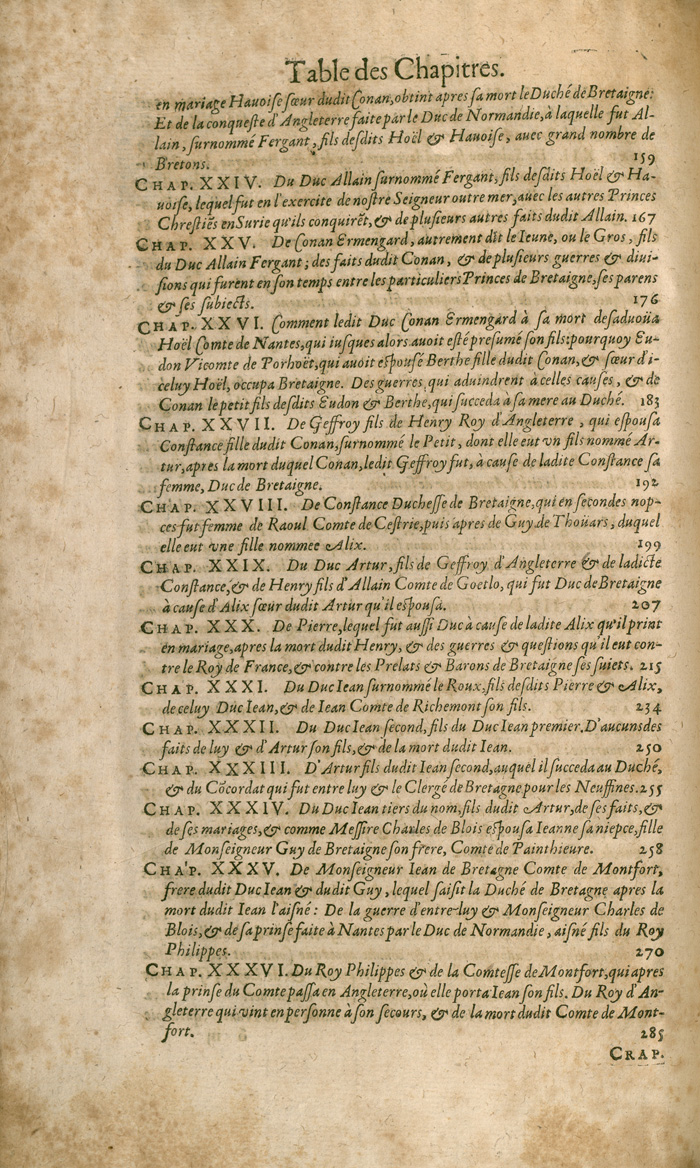 Table des Chapitres.
en mariage Hauoiſe ſœur dudit Conan, obtint apres ſa mort le Duché de Bretaigne:
Et de la conqueſte d'Angleterre faite par le Duc de Normandie, à laquelle fut Al-
lain, ſurnommé Fergant, fils deſdits Hoël & Hauoiſe, auec grand nombre de
Bretons. 159
CHAP. XXIV. Du Duc Allain ſurnommé Fergant, fils deſdits Hoël & Ha-
uoiſe, lequel fut en l'exercite de noſtre Seigneur outre mer, auec les autres Princes
Chreſtiẽs en Surie qu'ils conquirẽt, & de pluſieurs autres faits dudit Allain. 167
CHAP. XXV. De Conan Ermengard, autrement dit le Ieune, ou le Gros, fils
du Duc Allain Fergant; des faits dudit Conan, & de pluſieurs guerres & diui-
ſions qui furent en ſon temps entre les particuliers Princes de Bretaigne, ſes parens
& ſes ſubiects. 176
CHAP. XXVI. Comment ledit Duc Conan Ermengard à ſa mort deſaduoüa
Hoël Comte de Nantes, qui iuſques alors auoit eſté preſumé ſon fils: pourquoy Eu-
don Vicomte de Porhoët, qui auoit eſpouſé Berthe fille dudit Conan, & ſœur d'i-
celuy Hoël, occupa Bretaigne. Des guerres qui aduindrent à celles cauſes, & de
Conan le petit fils deſdits Eudon & Berthe, qui ſucceda à ſa mere au Duché. 183
CHAP. XXVII. De Geffroy fils de Henry Roy d'Angleterre, qui eſpouſa
Conſtance fille dudit Conan, ſurnommé le Petit, dont elle eut vn fils nommé Ar-
tur, apres la mort duquel Conan, ledit Geffroy fut, à cauſe de ladite Conſtance ſa
femme, Duc de Bretaigne. 192
CHAP. XXVIII. De Conſtance Ducheſſe de Bretaigne, qui en ſecondes nop-
ces fut femme de Raoul Comte de Ceſtrie, puis apres de Guy de Thoüars, duquel
elle eut vne fille nommee Alix. 199
CHAP. XXIX. Du Duc Artur, fils de Geffroy d'Angleterre & de ladicte
Conſtance, & de Henry fils d'Allain Comte de Goetlo, qui fut Duc de Bretaigne
à cauſe d'Alix ſœur dudit Artur qu'il eſpouſa. 207
CHAP. XXX. De Pierre, lequel fut auſſi Duc à cauſe de ladite Alix qu'il print
en mariage, apres la mort dudit Henry, & des guerres & queſtions qu'il eut con-
tre le Roy de France, & contre les Prelats & Barons de Bretaigne ſes ſuiets. 215
CHAP. XXXI. Du Duc Iean ſurnommé le Roux, fils deſdits Pierre & Alix,
de celuy Duc Iean, & de Iean Comte de Richemont ſon fils. 234
CHAP. XXXII. Du Duc Iean ſecond, fils du Duc Iean premier. D'aucuns des
faits de luy & d'Artur ſon fils, & de la mort dudit Iean. 250
CHAP. XXXIII. D'Artur fils dudit Iean ſecond, auquel il ſucceda au Duché,
& du Cõcordat qui fut entre luy & le Clergé de Bretagne pour les Neuffines. 255
CHAP. XXXIV. Du Duc Iean tiers du nom, fils dudit Artur, de ſes faits, &
de ſes mariages, & comme Meſſire Charles de Blois eſpouſa Ieanne ſa niepce, fille
de Monſeigneur Guy de Bretaigne ſon frere, Comte de Painthieure. 258
CHAP. XXXV. De Monſeigneur Iean de Bretagne Comte de Montfort,
frere dudit Duc Iean & dudit Guy, lequel ſaiſit la Duché de Bretagne apres la
mort dudit Iean l'aiſné: De la guerre d'entre-luy & Monſeigneur Charles de
Blois, & de ſa prinſe faite à Nantes par le Duc de Normandie, aiſné fils du Roy
Philippes. 270
CHAP. XXXVI. Du Roy Philippes & de la Comteſſe de Montfort, qui apres
la prinſe du Comte paſſa en Angleterre, où elle porta Iean ſon fils. Du Roy d'An-
gleterre qui vint en perſonne à ſon ſecours, & de la mort dudit Comte de Mont-
fort. 285
CRAP.